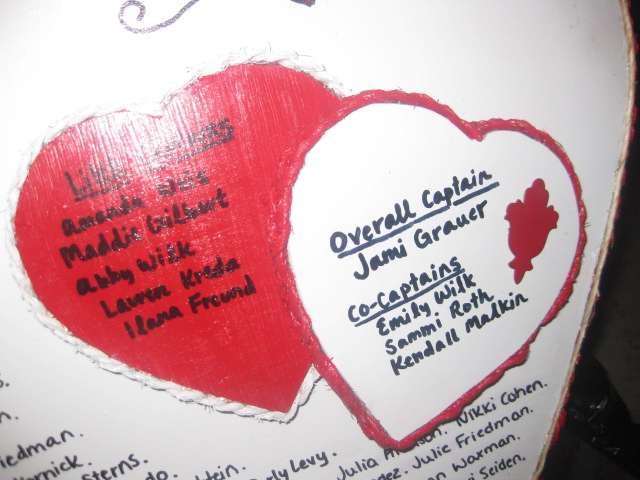 Amanda Weis
Maddie Gilburt
Abby Wilk
Lauren Kreda
Ilana Freund
Overall Captain
Jami Grauer
Co-Captains
Emily Wilk
Sammi Roth
Kendall Malkin
iedman.
Sterns.
ly Levy.
Julia Nikki Cohen.
Julie Friedman.
Waxman.
Seiden.